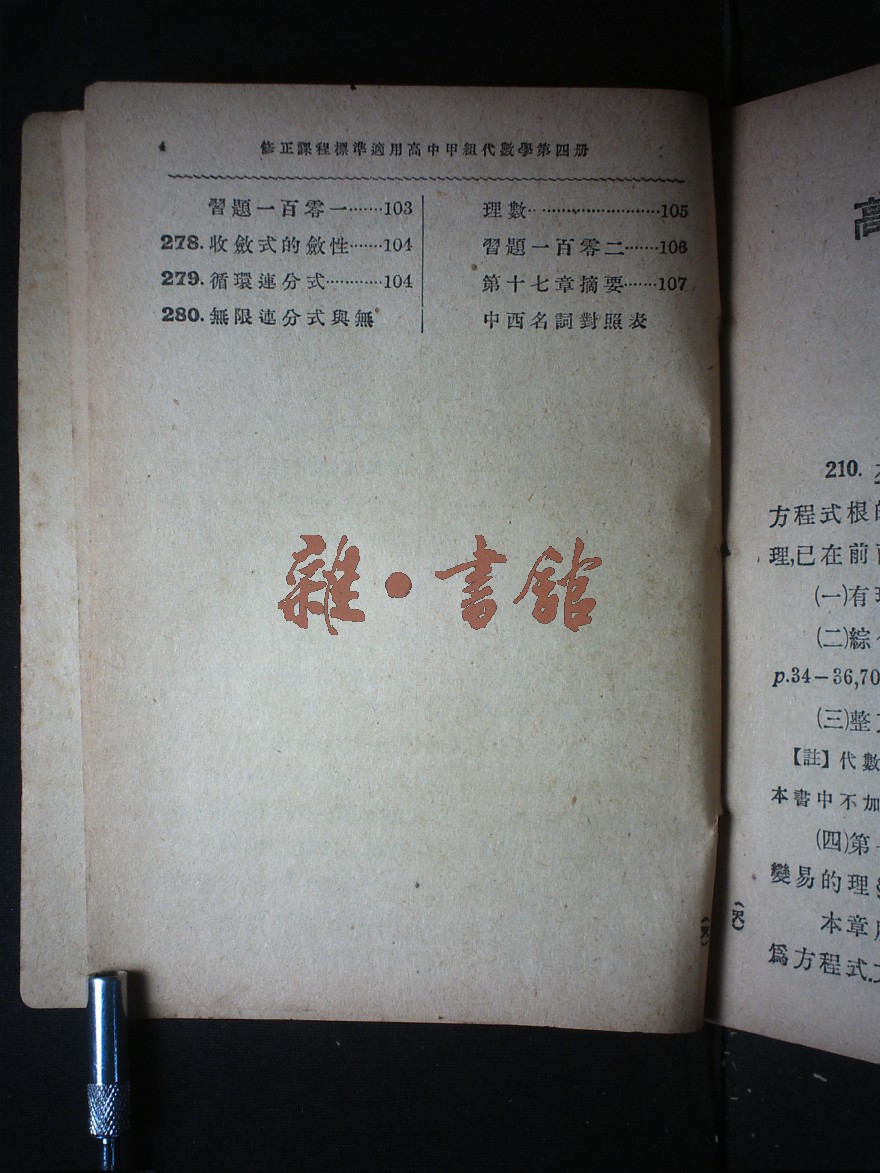 4 修正課程標準適用高中甲組代數學第四册
習題一百零一……103
278.收斂式的斂性……104
279.循環連分式…………104
280.無限連分式與無
理數…………………………105
習題一百零二……106
第十七章摘要……107
中西名詞對照表
雜·書館
高
210.
方程式根的
理,已在前
(一)有
(二)綜
p.34－36,70
(三)整
【註】代數
本書中不加
(四)第
變易的理
本章
爲方程式.